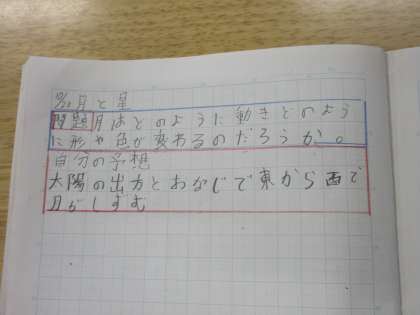 月と星
問題月はどのように動きどのよう
に形や色が変わるのだろうか。
自分の予想
太陽の出方とおなじで東から西で
月がしずむ